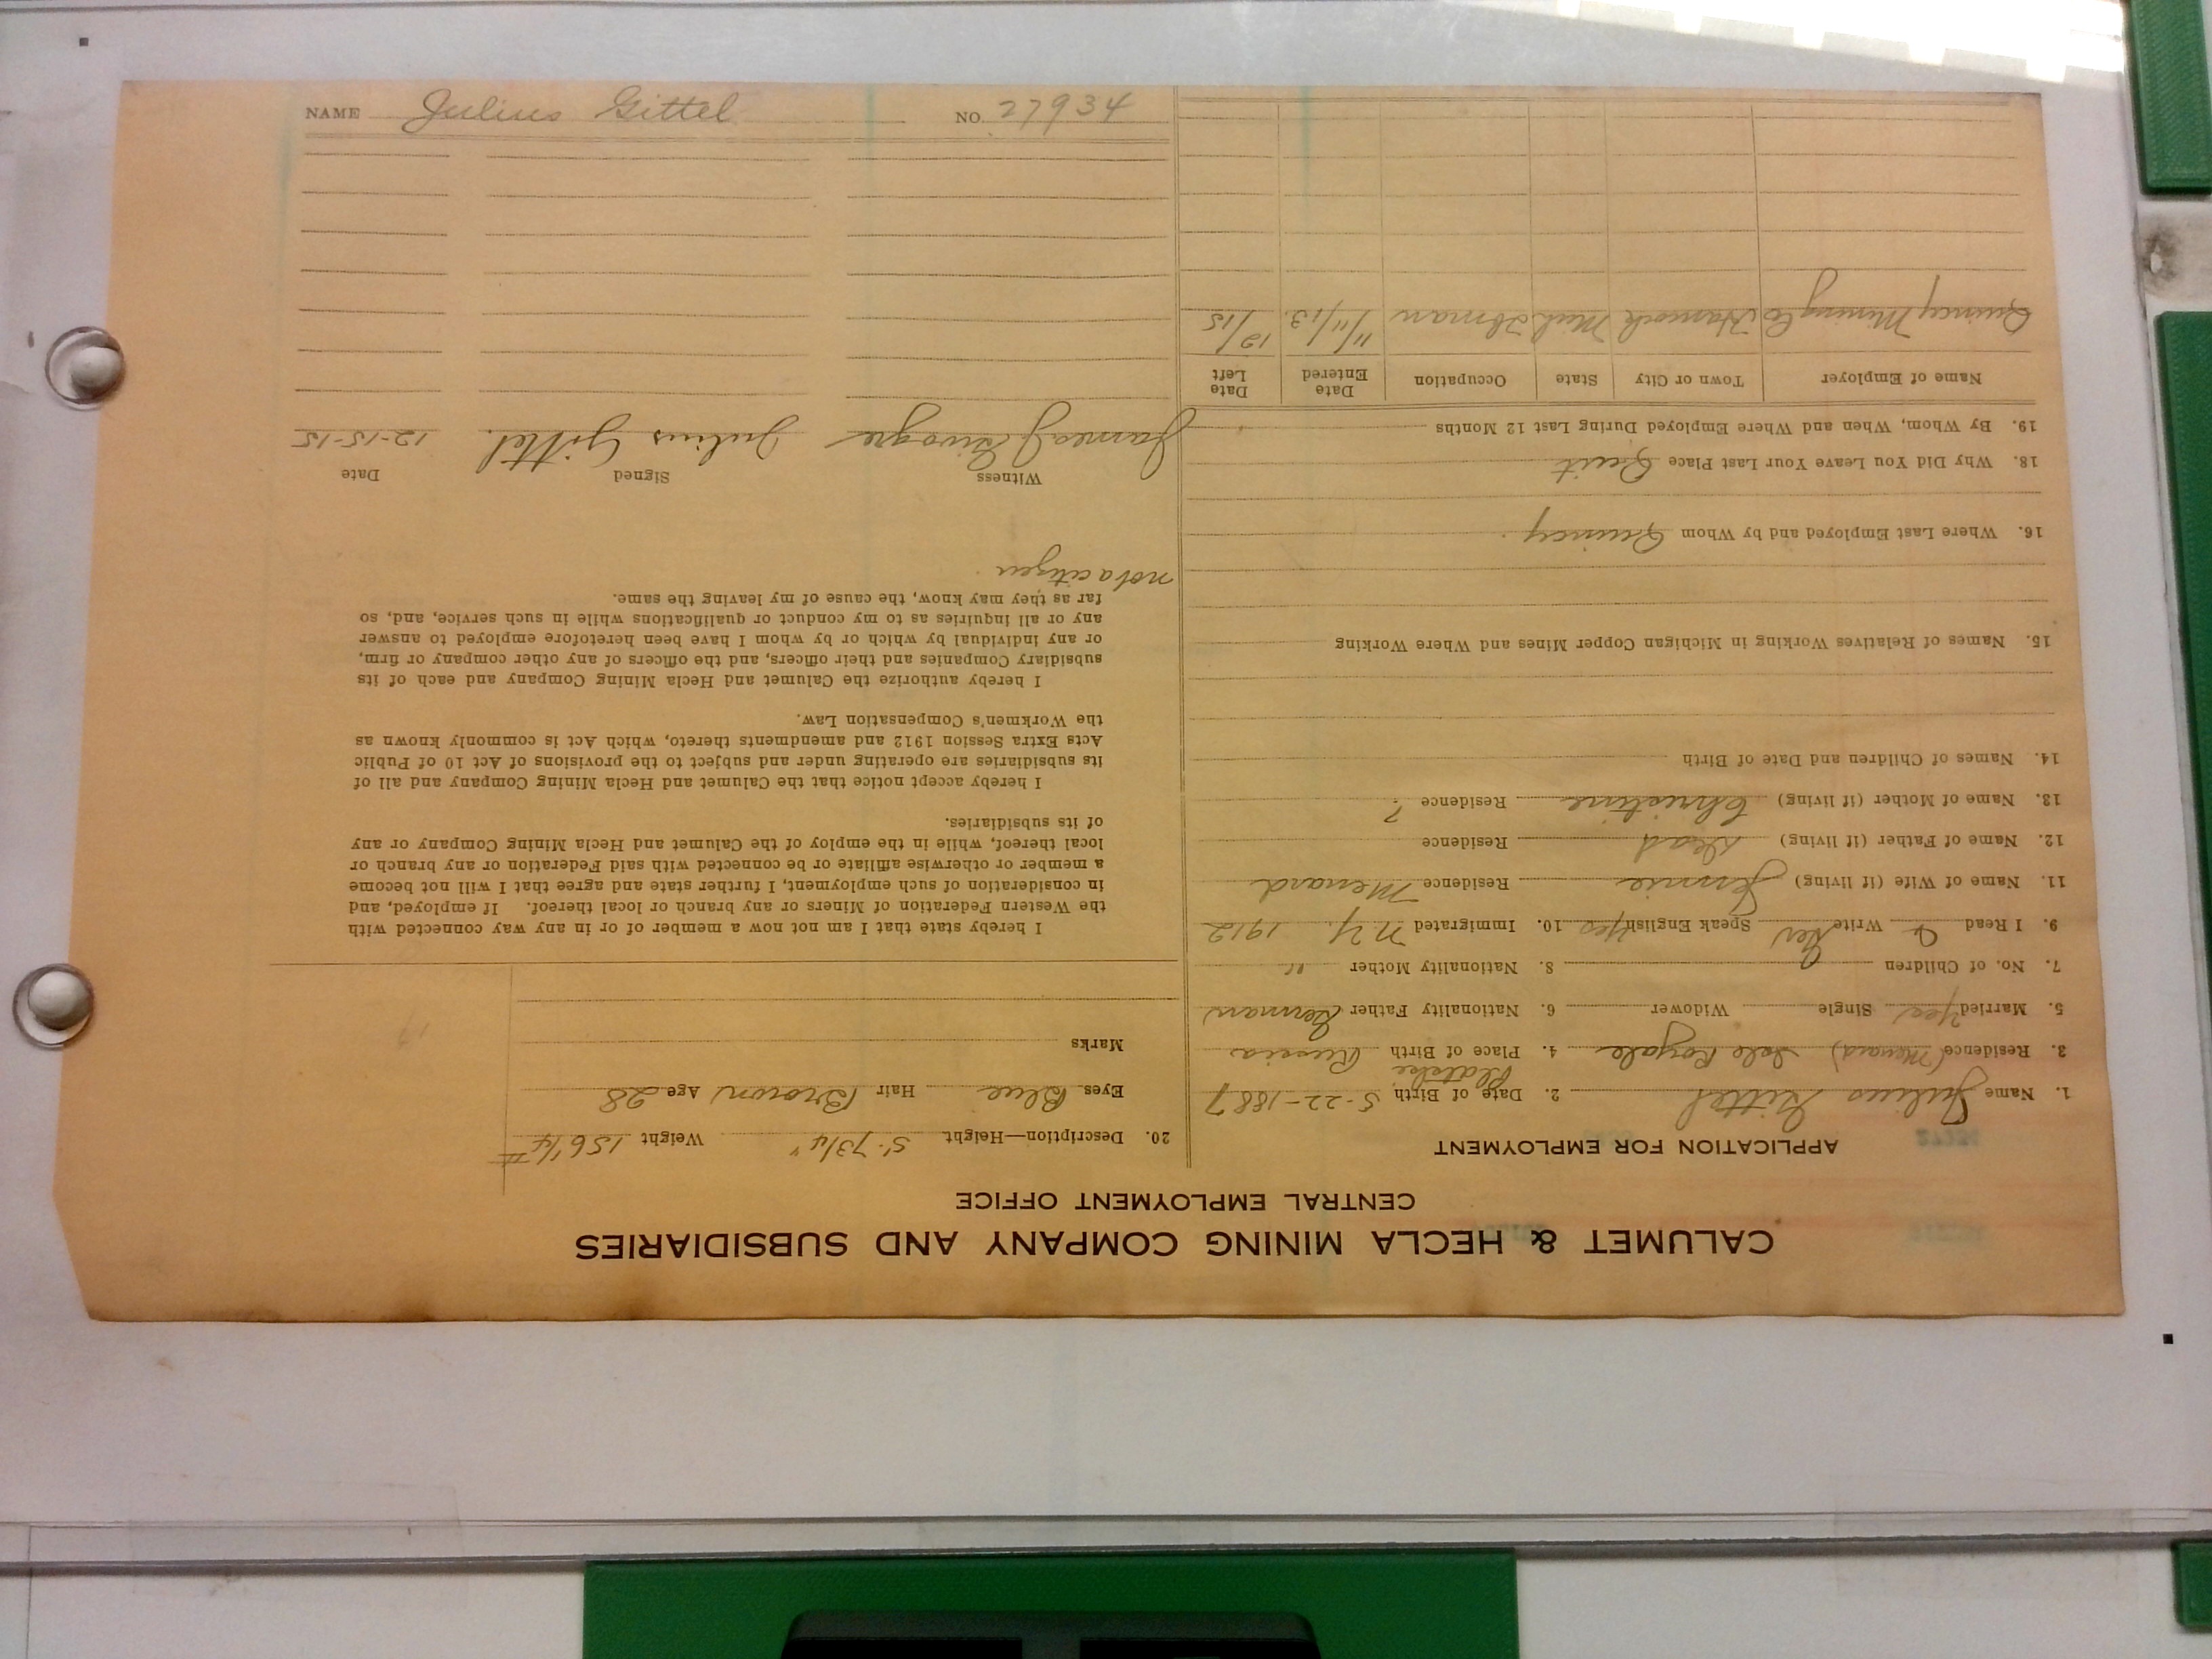 CALUMET & HECLA MINING COMPANY AND SUBSIDIARIES
CENTRAL EMPLOYMENT OFFICE
APPLICATION FOR EMPLOYMENT
1. Name Julius Gittel 2. Date of Birth 5-22-1887
3. Residence (Menard) Isle Royale 4. Place of Birth Russia
5. Married Yes Single Widower 6. Nationality Father German
7. No. of Children 8. Nationality Mother "
9. I Read Write Ger Speak English Yes 10. Immigrated N.Y. 1912
11. Name of Wife (if living) Jennie Residence Menard
12. Name of Father (if living) Dead Residence
13. Name of Mother (if living) Christine Residence ?
14. Names of Children and Date of Birth
15. Names of Relatives Working in Michigan Copper Mines and Where Working
16. Where Last Employed and by Whom Quincy
18. Why Did You Leave Your Last Place Quit
19. By Whom, When and Where Employed During Last 12 Months
Name of Employer Town or City State Occupation Date Entered Date Left
Quincy Mining Co Hancock Mich man 11/11/13 12/15
20. Description—Height 5' 7 3/4" Weight 156 1/4 #
Eyes Blue Hair Brown Age 28
Marks
I hereby state that I am not now a member of or in any way connected with
the Western Federation of Miners or any branch or local thereof. If employed, and
in consideration of such employment, I further state and agree that I will not become
a member or otherwise affiliate or be connected with said Federation or any branch or
local thereof, while in the employ of the Calumet and Hecla Mining Company or any
of its subsidiaries.
I hereby accept notice that the Calumet and Hecla Mining Company and all of
its subsidiaries are operating under and subject to the provisions of Act 10 of Public
Acts Extra Session 1912 and amendments thereto, which Act is commonly known as
the Workmen's Compensation Law.
I hereby authorize the Calumet and Hecla Mining Company and each of its
subsidiary Companies and their officers, and the officers of any other company or firm,
or any individual by which or by whom I have been heretofore employed to answer
any or all inquiries as to my conduct or qualifications while in such service, and, so
far as they may know, the cause of my leaving the same.
not a citizen
Witness Signed Date
James J Julius Gittel. 12-15-15
NAME Julius Gittel NO. 27934